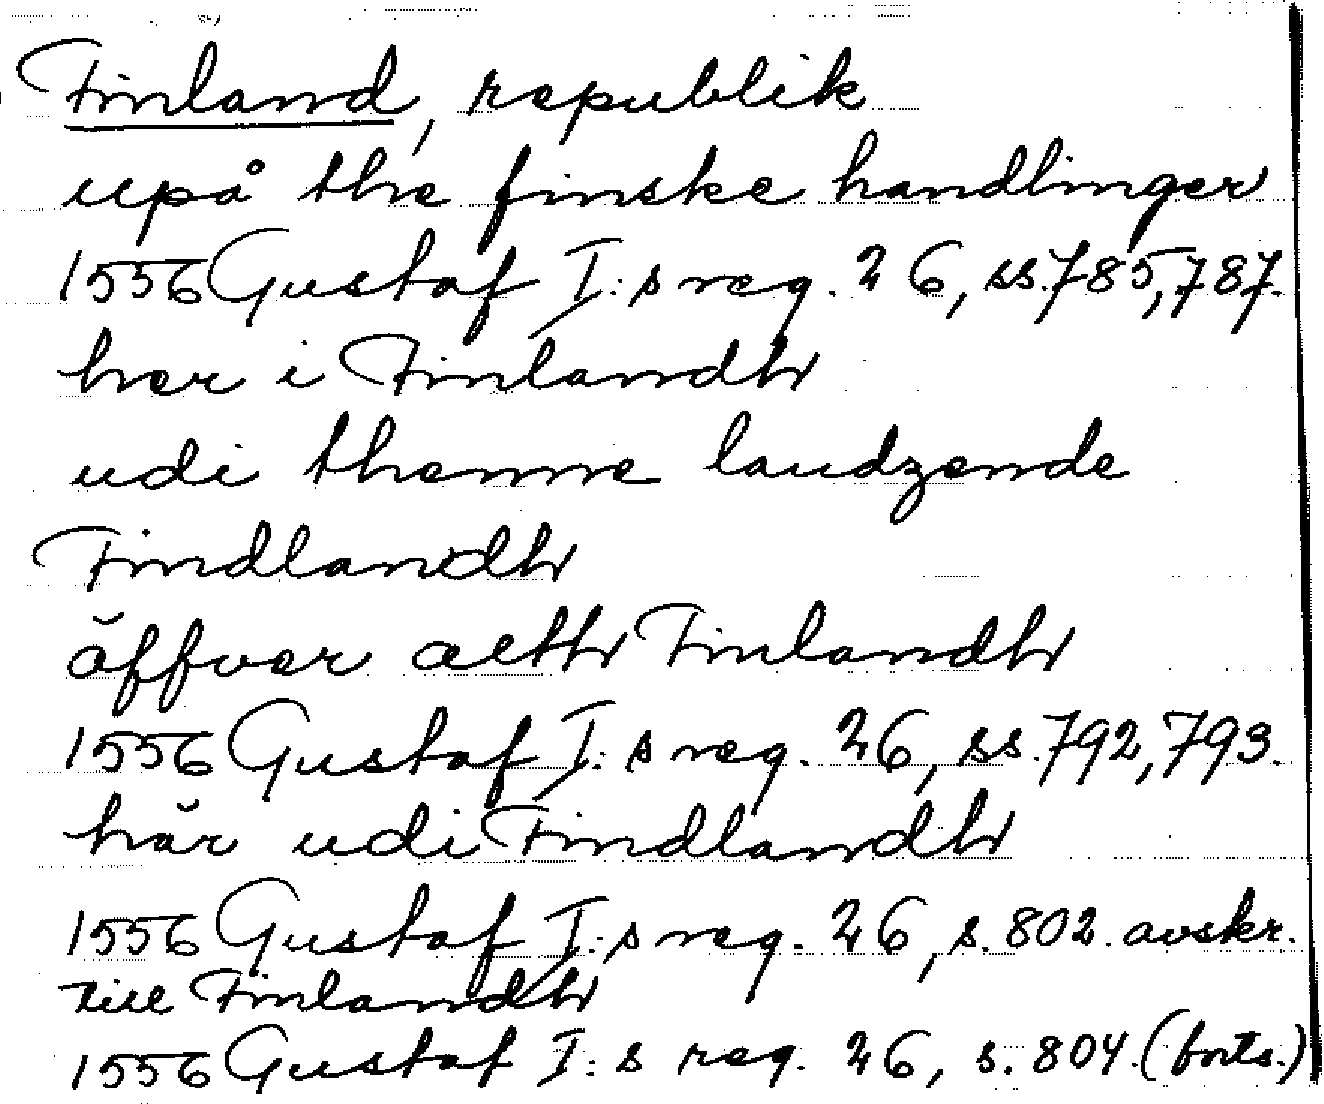 Finland, republik
upå the finske handlinger
1556 Gustaf I:s reg. 26, ss. 785, 787.
her i Finlandh
udi thenne landzende
Findlandh
öffver alth Finlandh
1556 Gustaf I:s reg. 26, ss. 792, 793.
här udi Findlandh
1556 Gustaf I:s reg. 26, s. 802. avskr.
till Finlandh
1556 Gustaf I:s reg. 26, s. 804. (forts.)